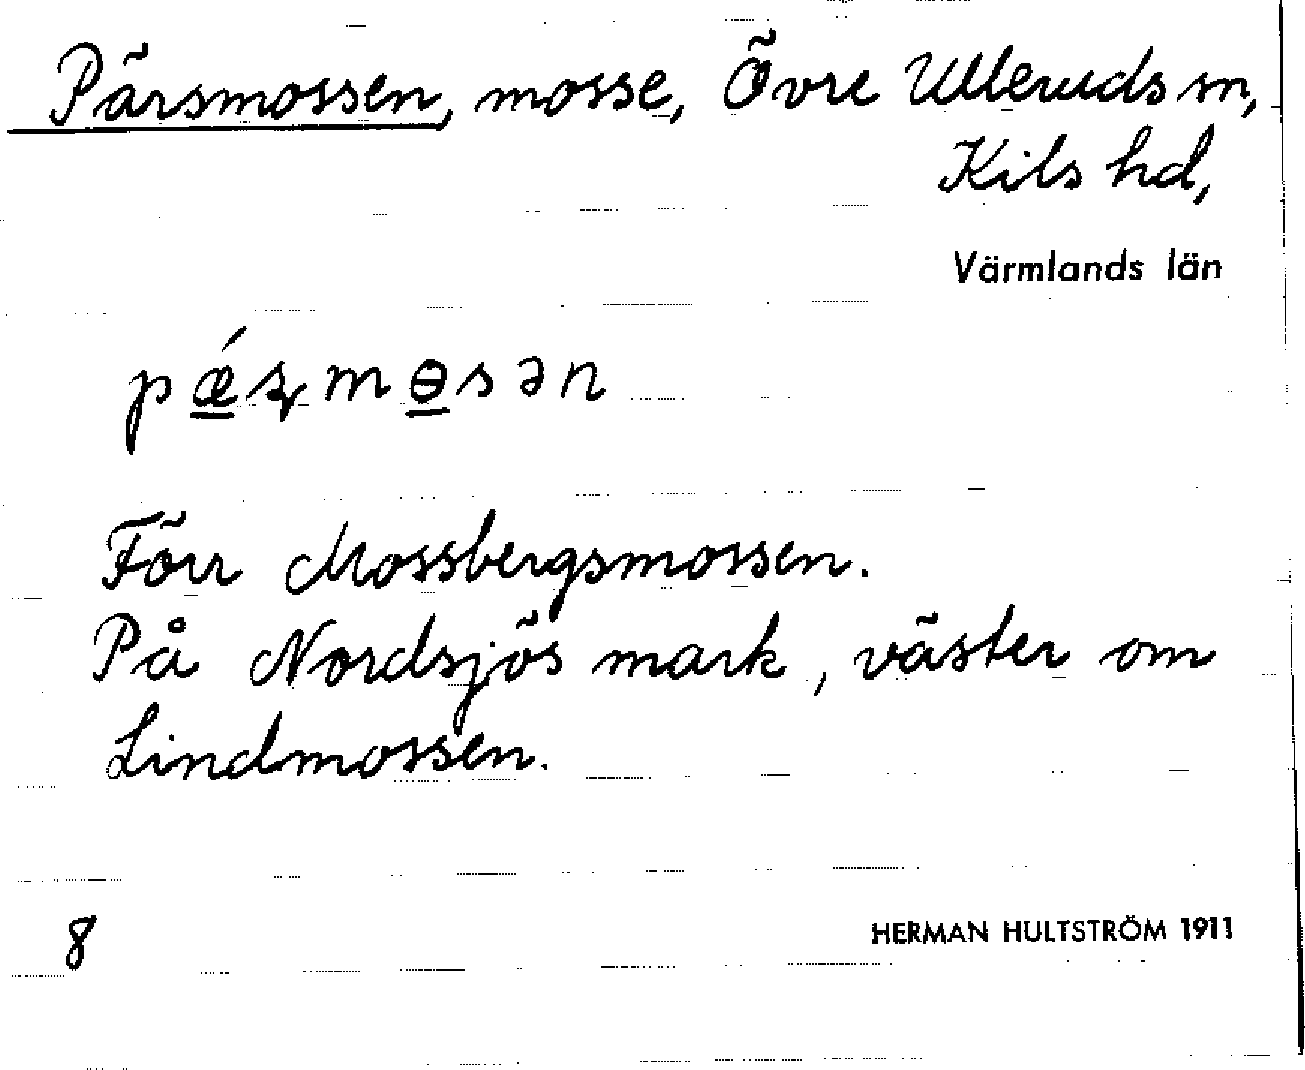 Pärsmossen, mosse, Övre Ulleruds sn,
Kils hd,
Värmlands län
pǽʂmɵsən
Förr Mossbergsmossen.
På Nordsjös mark, väster om
Lindmossen.
8
HERMAN HULTSTRÖM 1911